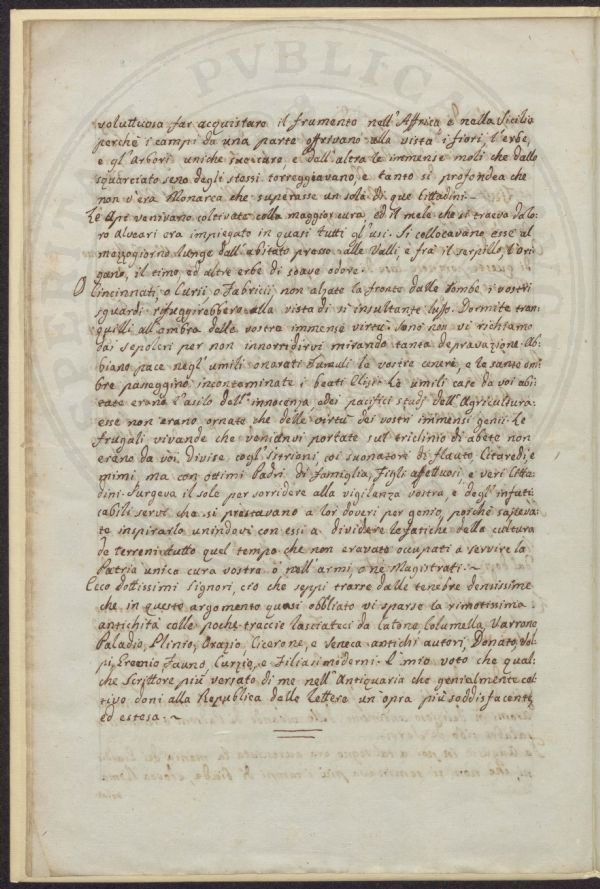 PVBLICA
voluttuosa far acquistare il frumento nell'Affrica e nella Sicilia
perchè i campi da una parte offrivano alla vista i fiori, l'erbe,
e gl'arbori uniche e dall'altra le immense moli che dallo
squarciato seno degli stessi torreggiavano, e tanto si profondea che
non v'era Monarca che superasse un sola di que Cittadini.~
Le Api venivano coltivate colla maggior cura, ed il mele che si traeva da lo=
ro alveari era impiegato in quasi tutti gl'usi. Si collocavano esse al
mezzogiorno lunge dall'abitato presso alle Valli, e frà il serpillo, l'ori=
gano, il timo, ed altre erbe di soave odore.
O Cincinnati, o Curii, o Fabricii, non alzate la fronte dalle Tombe i vostri
sguardi rifuggirebbero alla vista di sì insultante lusso. Dormite tran=
quilli all'ombra delle vostre immense virtù. Sono non vi richiamo
dai sepolcri per non innorridirvi mirando tanta depravazione. Ab=
biano pace negl'umili onorati Tumuli le vostre ceneri, e le sante om=
bre passeggino incontaminate i beati Elisi. Le umili case da voi abi=
tate erano l'asilo dell'innocenza, e dei pacifici studj dell'Agricoltura:
esse non erano ornate che delle virtù dei vostri immensi genii. Le
frugali vivande che venianvi portate sul triclinio di abete non
erano da voi divise cogl'Istrioni, coi suonatori di flauto, Citaredi, e
mimi, ma con ottimi Padri di famiglia, Figli affettuosi, e veri Citta=
dini. Surgeva il sole per sorridere alla vigilanza vostra, e degl'infati=
cabili servi che si prestavano a lor doveri per genio, poichè sapeva=
te inspirarlo unindovi con essi a dividere le fatiche della cultura
de terreni tutto quel tempo che non eravate occupati a servire la
Patria unica cura vostra o nell'armi, o ne Magistrati.~
Ecco dottissimi Signori, ciò che seppi trarre dalle tenebre densissime
che in questo argomento quasi obbliato vi sparse la rimotissima
antichità colle poche traccie lasciateci da Catone Columella, Varrone
Paladio, Plinio, Orazio, Cicerone, e Seneca antichi autori, Donato, Vol=
pi, Ereenio Fauno, Curzio, e Filiasi moderni. È mio voto che qual=
che Scrittore più versato di me nell'Antiquaria che genialmente col=
tivo doni alla Republica delle Lettere un'opra più soddisfacente,
ed estesa.~